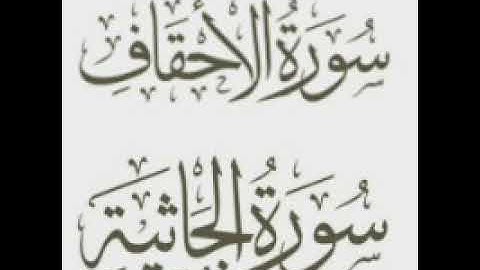 سُورَةُ الأَحْقَافِ
سُورَةُ الجَاثِيَةِ